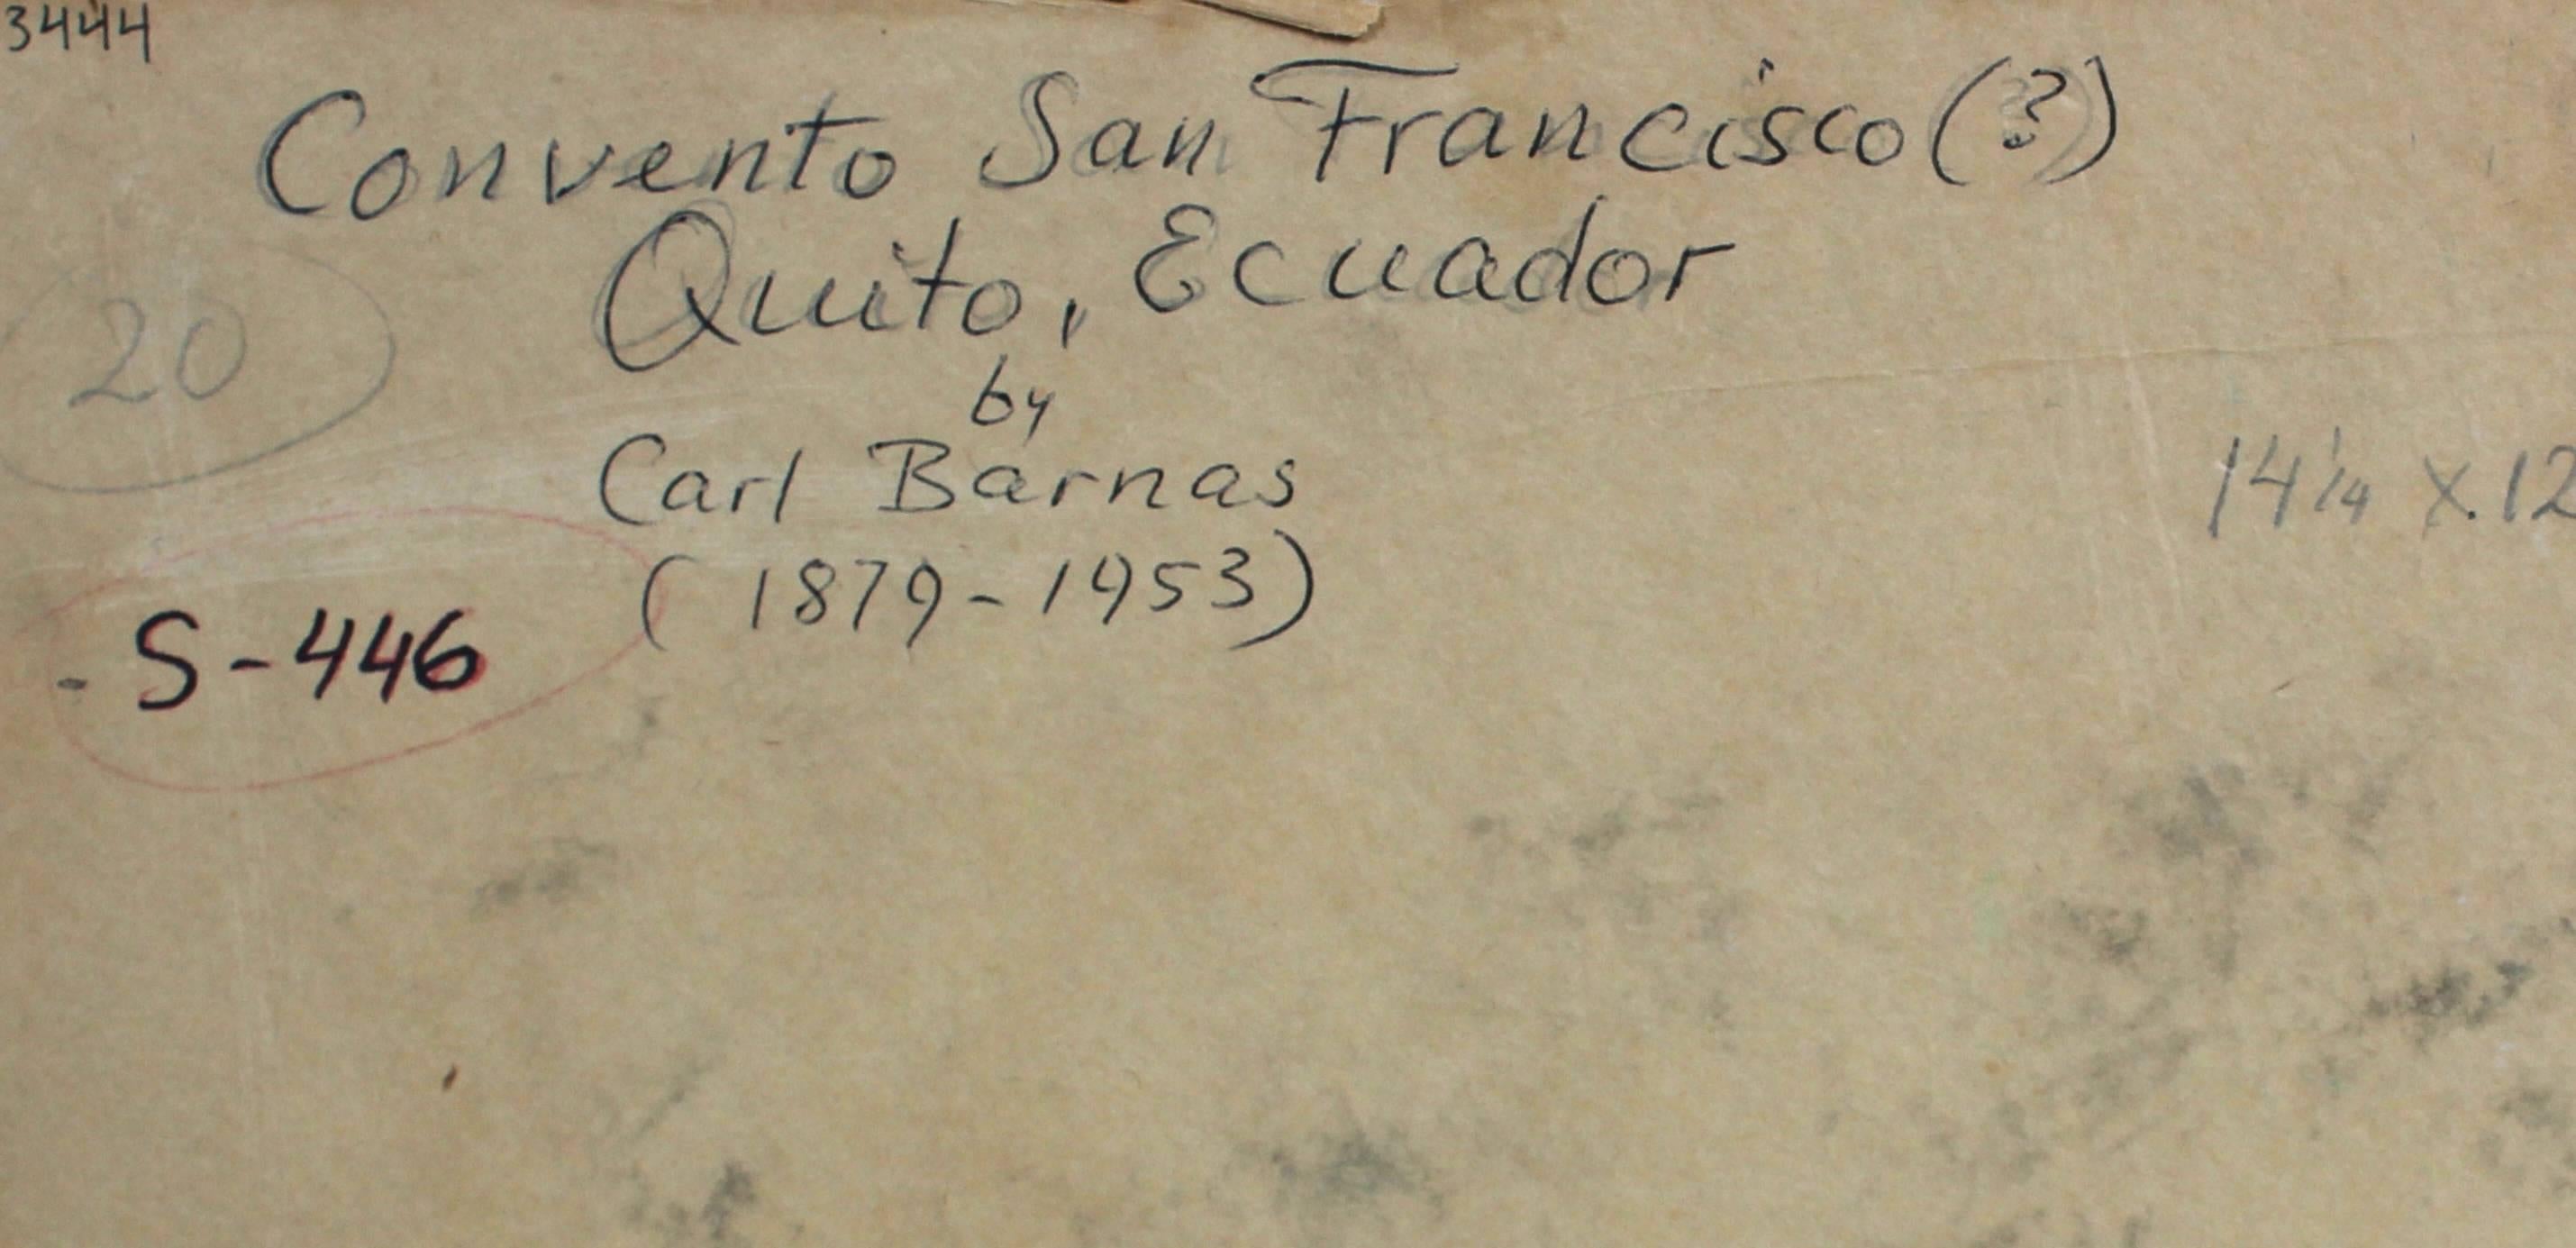 3444
Convento San Francisco (?)
Quito, Ecuador
20
by
Carl Barnas
14 1/4 X 12
(1879-1953)
- S-446